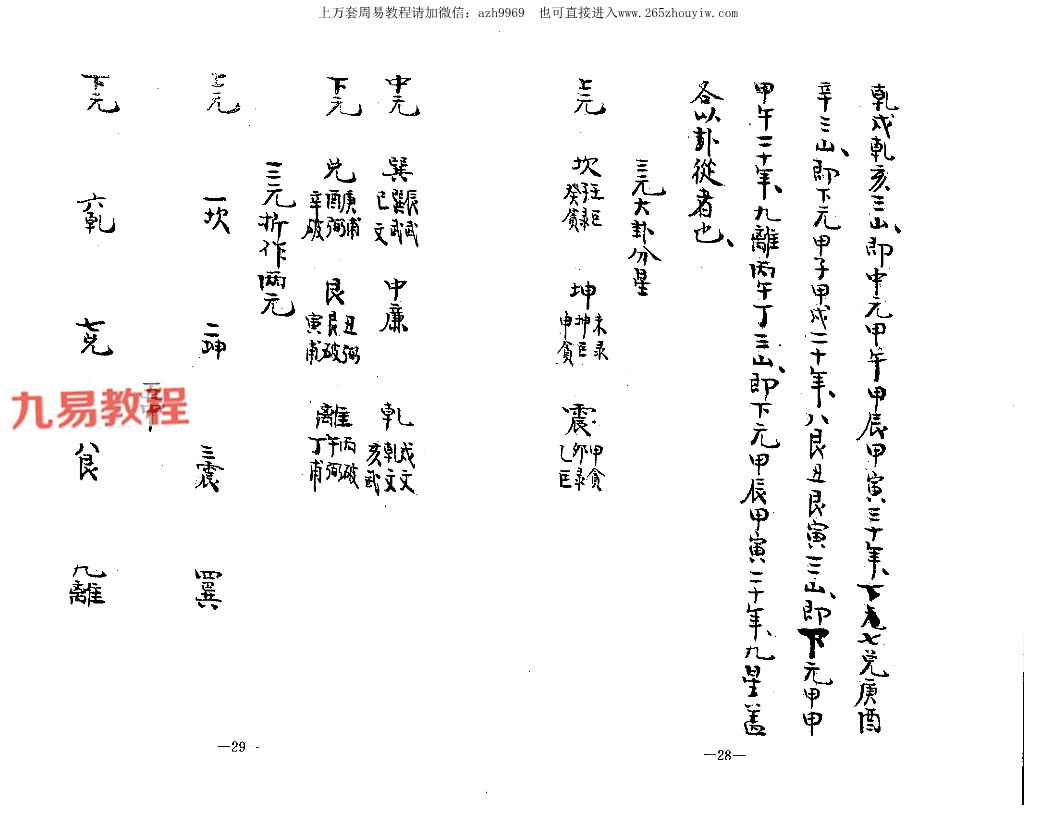 上万套周易教程请加微信：azh9969 也可直接进入www.265zhouyiw.com
乾戌乾亥三山、即中元甲午甲辰甲寅三十年、下元七兑庚酉
辛三山、即下元甲子甲戌二十年、八艮丑艮寅三山、即下元甲申
甲午二十年、九離丙午丁三山、即下元甲辰甲寅二十年、九星蓋
各以卦從者也、
三元大卦分星
上元 坎 壬巨 子録 癸貪 坤 未录 坤巨 申貪 震 甲貪 卯録 乙巨
—28—
中元 巽 辰武 巽武 巳文 中廉 乾 戌文 乾文 亥武
下元 兑 庚甫 酉弼 辛破 艮 丑弼 艮破 寅甫 離 丙破 午弼 丁甫
三元折作两元
上元 一坎 二坤 三震 四巽
五中
下元 六乾 七兑 八艮 九離
—29
九易教程